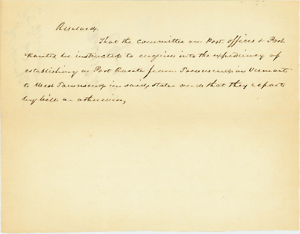 Resolved,
That the Committee on Post offices & Post
Routes be instructed to enquire into the expediency of
establishing a Post Route from Townsend in Vermont
to West Townsend in said State and that they report
by bill or otherwise,